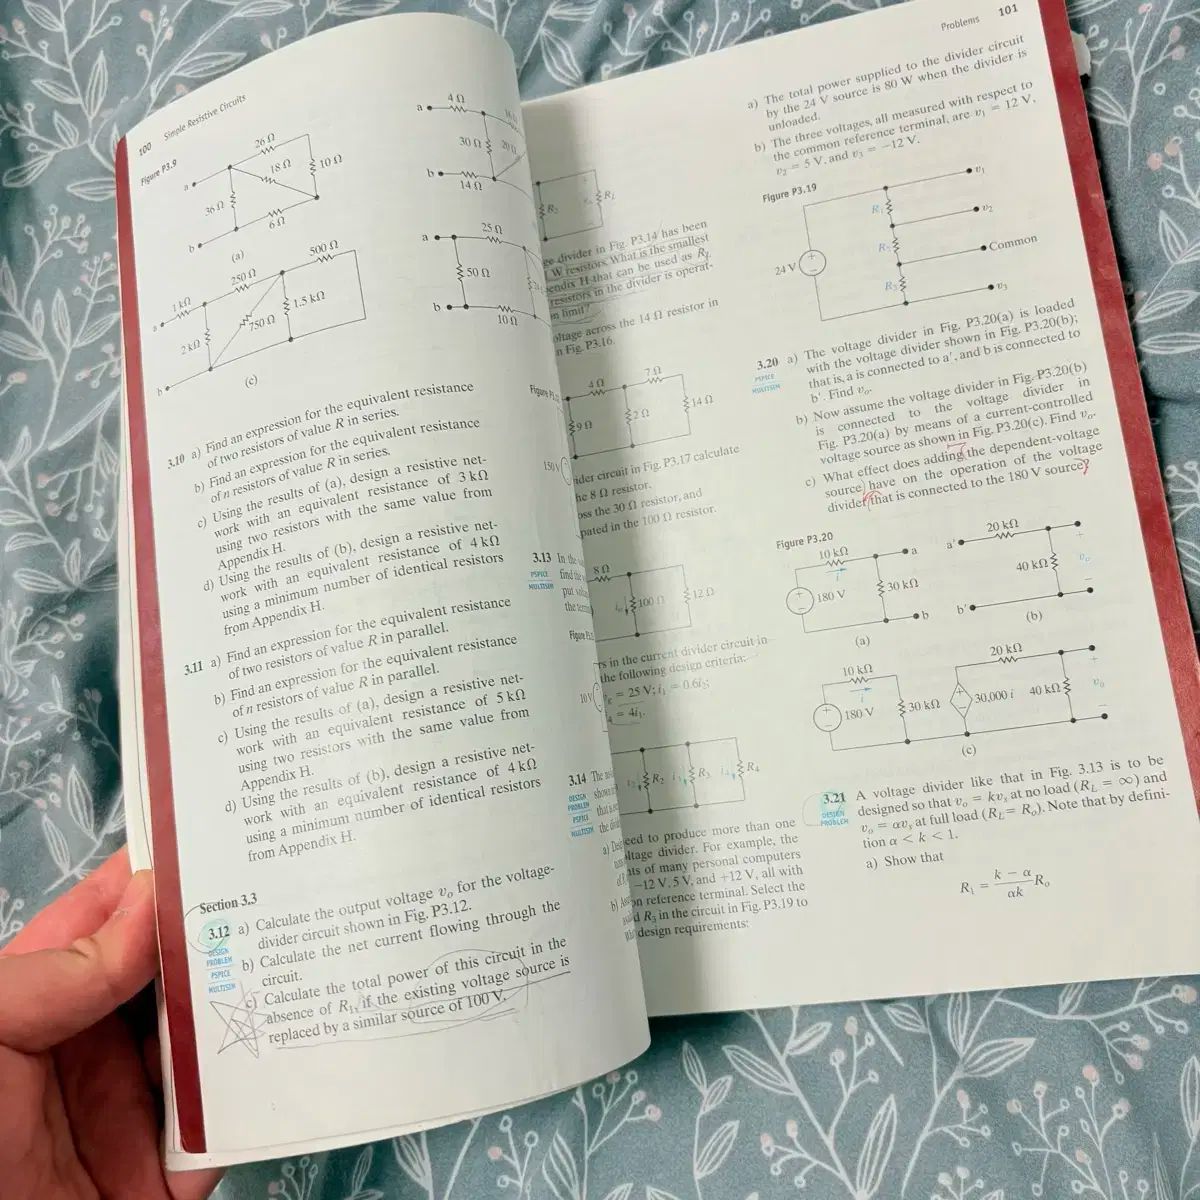 100 Simple Resistive Circuits
Figure P3.9
26 Ω
a
18 Ω
10 Ω
36 Ω
b
6 Ω
(a)
500 Ω
250 Ω
1 kΩ
a
1.5 kΩ
750 Ω
2 kΩ
b
(c)
4 Ω
a
30 Ω
20 Ω
b
14 Ω
25 Ω
a
50 Ω
b
10 Ω
3.10 a) Find an expression for the equivalent resistance
of two resistors of value R in series.
b) Find an expression for the equivalent resistance
of n resistors of value R in series.
c) Using the results of (a), design a resistive net-
work with an equivalent resistance of 3 kΩ
using two resistors with the same value from
Appendix H.
d) Using the results of (b), design a resistive net-
work with an equivalent resistance of 4 kΩ
using a minimum number of identical resistors
from Appendix H.
3.11 a) Find an expression for the equivalent resistance
of two resistors of value R in parallel.
b) Find an expression for the equivalent resistance
of n resistors of value R in parallel.
c) Using the results of (a), design a resistive net-
work with an equivalent resistance of 5 kΩ
using two resistors with the same value from
Appendix H.
d) Using the results of (b), design a resistive net-
work with an equivalent resistance of 4 kΩ
using a minimum number of identical resistors
from Appendix H.
Section 3.3
3.12 a) Calculate the output voltage vo for the voltage-
DESIGN
PROBLEM
PSPICE
MULTISIM
divider circuit shown in Fig. P3.12.
b) Calculate the net current flowing through the
circuit.
c) Calculate the total power of this circuit in the
absence of R1, if the existing voltage source is
replaced by a similar source of 100 V.
150 V
3.13 In the
PSPICE find the
MULTISIM put
the
10 V
3.14 The
DESIGN
PROBLEM
PSPICE
MULTISIM
a)
b)
R2
RL
divider in Fig. P3.14 has been
W resistors. What is the smallest
H that can be used as
resistors in the divider is operat-
limit?
across the 14 Ω resistor in
Fig. P3.16.
4 Ω
7 Ω
9 Ω
2 Ω
14 Ω
circuit in Fig. P3.17 calculate
8 Ω resistor.
the 30 Ω resistor, and
in the 100 Ω resistor.
8 Ω
100 Ω
12 Ω
in the current divider circuit in
the following design criteria:
= 25 V; i1 = 0.6i3;
= 4i1.
R2
R3
R4
to produce more than one
divider. For example, the
of many personal computers
−12 V, 5 V, and +12 V, all with
reference terminal. Select the
R3 in the circuit in Fig. P3.19 to
design requirements:
Problems 101
a) The total power supplied to the divider circuit
by the 24 V source is 80 W when the divider is
unloaded.
b) The three voltages, all measured with respect to
the common reference terminal, are v1 = 12 V,
v2 = 5 V, and v3 = −12 V.
Figure P3.19
v1
R1
v2
R2
24 V
Common
R3
v3
3.20 a) The voltage divider in Fig. P3.20(a) is loaded
PSPICE
MULTISIM
with the voltage divider shown in Fig. P3.20(b);
that is, a is connected to a', and b is connected to
b'. Find vo.
b) Now assume the voltage divider in Fig. P3.20(b)
is connected to the voltage divider in
Fig. P3.20(a) by means of a current-controlled
voltage source as shown in Fig. P3.20(c). Find vo.
c) What effect does adding the dependent-voltage
source have on the operation of the voltage
divider that is connected to the 180 V source?
Figure P3.20
10 kΩ
a
i
180 V
30 kΩ
b
(a)
20 kΩ
a'
40 kΩ
vo
b'
(b)
10 kΩ
i
180 V
30 kΩ
30,000 i
20 kΩ
40 kΩ
vo
(c)
3.21 A voltage divider like that in Fig. 3.13 is to be
DESIGN
PROBLEM
designed so that vo = kvs at no load (RL = ∞) and
vo = αvs at full load (RL = Ro). Note that by defini-
tion α < k < 1.
a) Show that
R1 = (k − α)/(αk) Ro